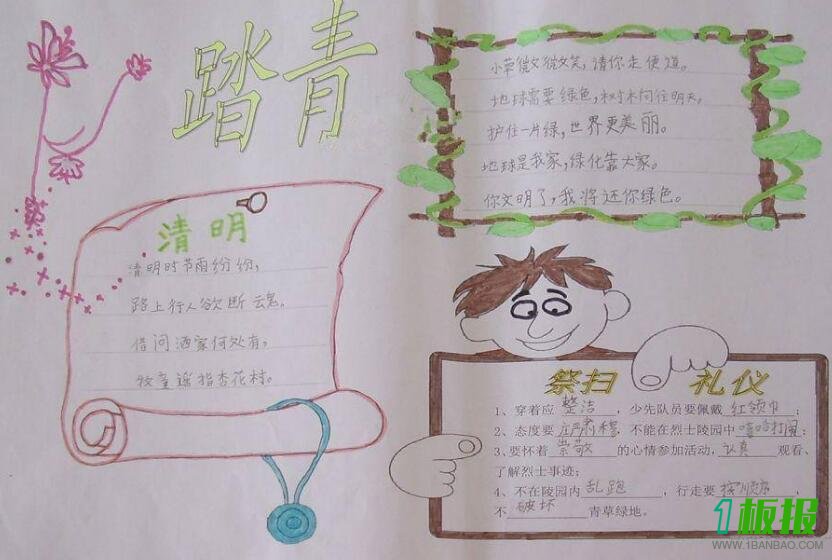 踏青
小草微微笑,请你走便道。
地球需要绿色,树木向往明天。
护住一片绿,世界更美丽。
地球是我家,绿化靠大家。
你文明了,我将还你绿色。
清明
清明时节雨纷纷,
路上行人欲断魂。
借问酒家何处有。
牧童遥指杏花村。
祭扫 礼仪
1、穿着应 整洁 ,少先队员要佩戴 红领巾 ;
2、态度要 庄严肃穆 ,不能在烈士陵园中 嘻哈打闹 ;
3、要怀着 崇敬 的心情参加活动, 认真 观看、
了解烈士事迹;
4、不在陵园内 乱跑 ,行走要 按顺序 ,
不 破坏 青草绿地。
1板报
WWW.1BANBAO.COM